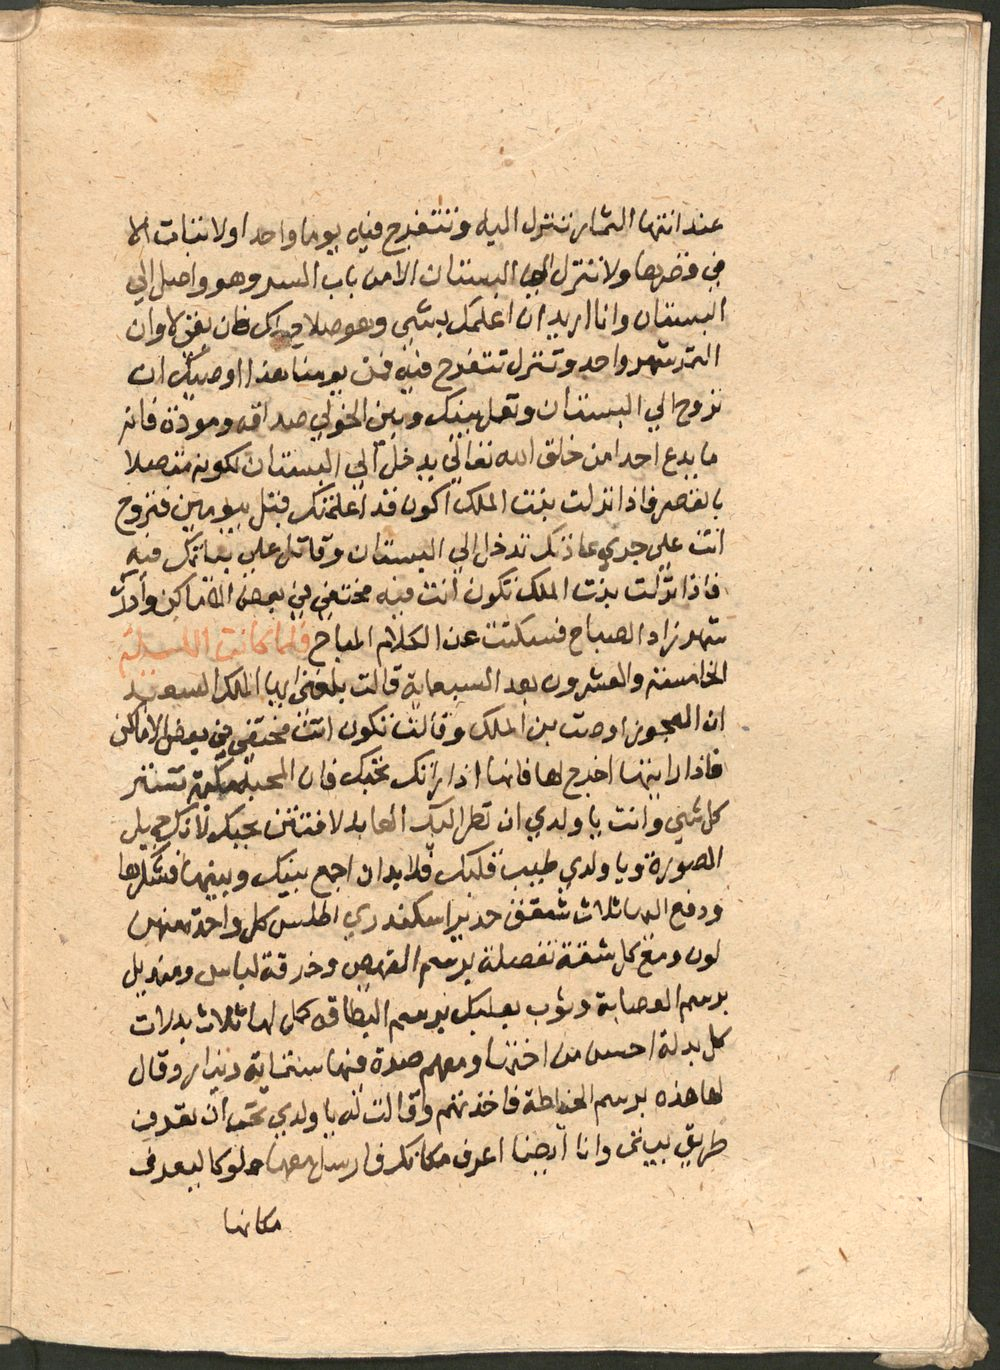 عند انتها الثمار تنزل اليه وتتفرج فيه يوما واحدا ولا تبات الا
في قصرها ولا تنزل الي البستان الا من باب السر وهو واصل الي
البستان وانا اريد ان اعلمك بشي وهو صلاحك فان بقي لاوان
الثمر شهر واحد وتنزل تتفرج فيه فمن يومنا هذا اوصيك ان
تروح الي البستان وتعمل بينك وبين الخولي صداقه ومودة فانه
ما يدع احدا من خلق الله تعالي يدخل الي البستان لكونه متصلا
بالقصر فاذا نزلت بنت الملك اكون قد اعلمتك قبل بيومين فتروح
انت علي جري عادتك تدخل الي البستان وتحايل علي بياتك فيه
فاذا نزلت بنت الملك تكون انت فيه مختفي في بعض الاماكن وادرك
شهرزاد الصباح فسكتت عن الكلام المباح فلما كانت الليلة
الخامسة والعشرون بعد السبعماية قالت بلغني ايها الملك السعيد
ان العجوز اوصت بن الملك وقالت تكون انت مختفي في بعض الاماكن
فاذا رايتها اخرج لها فانها اذا راتك تحبك فان المحبة تستر
كل شي وانت يا ولدي ان نظر اليك العابد لافتتن بحبك لانك جميل
الصورة ويا ولدي طيب قلبك فلا بد ان اجمع بينك وبينها فشكرها
ودفع الها ثلاث شقق حرير اسكندري اطلس كل واحدة منهن
لون ومع كل شقة تفصيلة برسم القميص وخرقة لباس ومنديل
برسم العصابة وثوب بعلبك برسم البطاقه كمل لها ثلاث بدلات
كل بدلة احسن من اختها ومعهم صرة فيها ستماية دينار وقال
لها هذه برسم الخياطة فاخذتهم وقالت له يا ولدي تحب ان تعرف
طريق بيتي وانا ايضا اعرف مكانك فارسل معها مملوكا ليعرف
مكانها